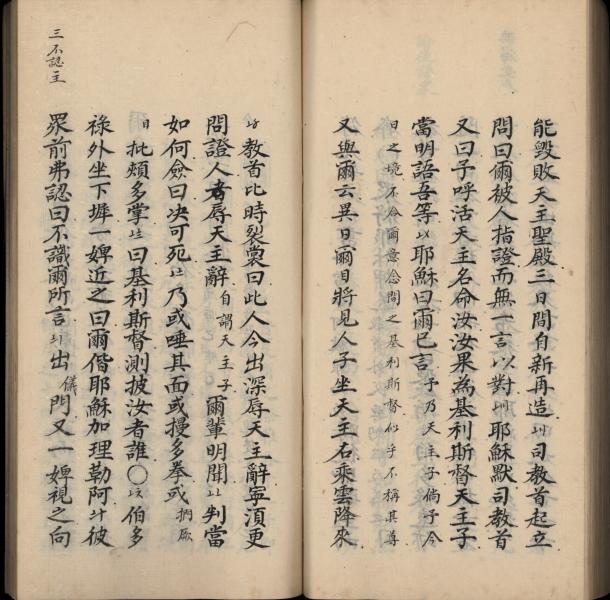 能毀敗天主聖殿三日間自新再造司教首起立
問曰爾被人指證而無一言以對耶穌默司教首
又曰子呼活天主名命汝汝果為基利斯督天主子
當明語吾等耶穌曰爾已言予乃天主子倘予今
日之境不合爾意念間之基利斯督似乎不稱其尊
又與爾云異日爾目將見人子坐天主右乘雲降來
教首比時裂裳曰此人今出深辱天主辭寧湏更
問證人者辱天主辭自謂天主子爾輩明聞判當
如何僉曰决可死乃或唾其面或擾多拳或捫厥
目批頰多掌曰基利斯督測披汝者誰〇伯多
祿外坐下墀一婢近之曰爾偕耶穌加理勒阿彼
眾前弗認曰不識爾所言出儀門又一婢視之向
三不認主